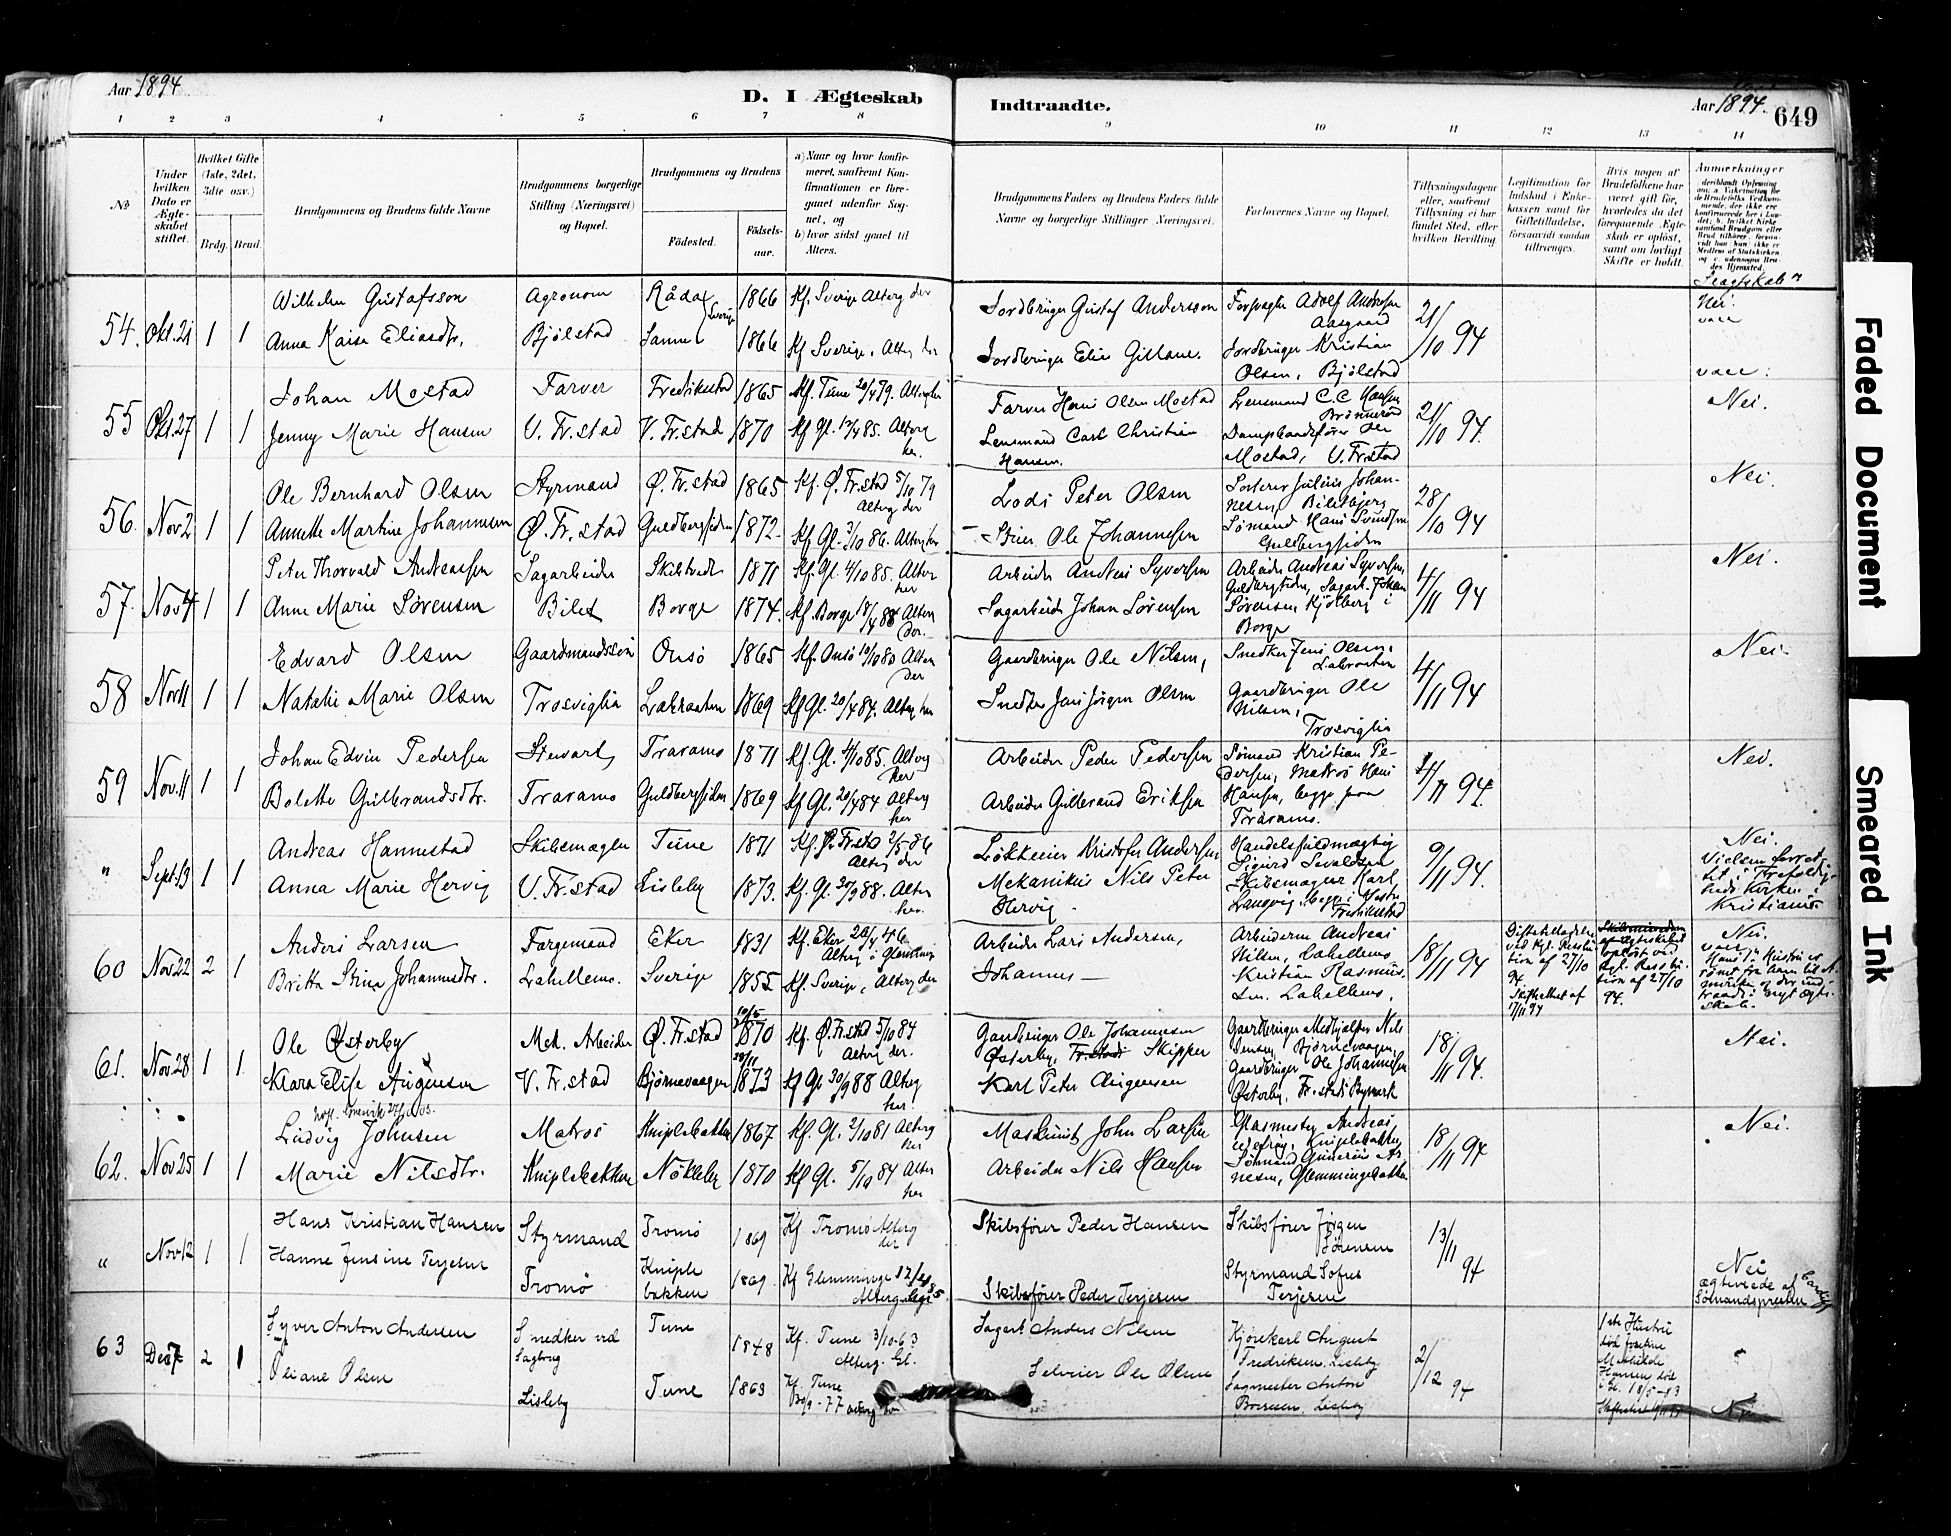 Aar 1894
D. I Ægteskab
Indtraadte.
Aar 1894. 649
1 2 3 4 5 6 7 8 9 10 11 12 13 14
No
Under hvilken Dato er Ægteskabet stiftet.
Hvilket Gifte (1ste, 2det, 3die osv.)
Brdg. Brud.
Brudgommens og Brudens fulde Navne
Brudgommens borgerlige Stilling (Næringsvei) og Bopæl.
Brudgommens og Brudens
Födested. Födsels-aar.
a) Naar og hvor konfirmeret, saafremt Konfirmationen er foregaaet udenfor Sognet, og
b) hvor sidst gaaet til Alters.
Brudgommens Faders og Brudens Faders fulde Navne og borgerlige Stillinger (Næringsvei).
Forlovernes Navne og Bopæl.
Tillysningsdagene eller, saafremt Tillysning ei har fundet Sted, efter hvilken Bevilling
Legitimation for Indskud i Enkekassen samt for Giftetilladelse, forsaavidt saadan tiltrænges.
Hvis nogen af Brudefolkene har været gift før, hvorledes da det foregaaende Ægteskab er opløst, samt om lovligt Skifte er holdt.
Anmerkninger
Slægtskab?
54. Okt. 21 1 1
Wilhelm Gustafsson Agronom Råda Sverige 1866 Kf. Sverige Alterg der
Anna Kaisa Eliasdtr. Bjölstad 1866 Kf Sverige. Alterg her
Jordbruger Gustaf Andersson
Jordbruger Elis
Forpagter Adolf Andersen Aasgaard
Jordbruger Kristian Olsen, Bjölstad
21/10 94
Nei.
55 Okt. 27 1 1
Johan Mostad Farver Fredrikstad 1865 Kf. Tune 20/4 79.
Jenny Marie Hansen V. Fr.stad V. Fr.stad 1870 Kf Gl. 85. Alterg her.
Farver Hans Olsen Mostad
Lensmand Carl Christian Hansen.
Lensmand C. C. Hansen
Mostad, V. Fr.stad
21/10 94.
Nei.
56. Nov 2 1 1
Ole Bernhard Olsen Styrmand Ø. Fr.stad 1865 Kf. Ø. Fr.stad 5/10 79 Alterg der
Annette Martine Johannesen Ø. Fr.stad Guldbergsiden 1872. Kf Gl. 3/10 86. Alterg her
Lods Peter Olsen
Ole Johannesen
Julius Johannesen,
Sømand Hans Svendsen Guldbergsiden
28/10 94
Nei.
57. Nov 4 1 1
Peter Thorvald Andreassen Sagarbeider Skiltvedt 1871 Kf. Gl. 4/10 85. Alter her
Anne Marie Sørensen Bilet Borge 1874. Kf. Borge 88 Altern der.
Arbeider Andreas Syversen
Sagarbeid. Johan Sørensen
Arbeider Andreas Syversen, Guldbergsiden, Sagarb. Johan Sørensen Kjölberg i Borge
4/11 94
Nei.
58 Nov 11 1 1
Edvard Olsen Gaardmandssön Onsö 1865 Kf. Onsö 10/10 80 Altern der
Natalie Marie Olsen Trosviglia 1869 Kf Gl. 20/4 84. Alterg her
Gaardbruger Ole Nilsen,
Snedker Jens Jörgen Olsen
Snedker Jens Olsen,
Gaardbruger Ole Nilsen, Trosviglia
4/11 94
Nei.
59 Nov. 11 1 1
Johan Edvin Pedersen Stewart Traraas 1871 Kf. Gl. 4/10 85. Alterg her
Bolette Gulbrandsdtr. Traraas Guldbergsiden 1869 Kf Gl. 20/4 84 Alterg her
Arbeider Peder Pedersen
Arbeider Gulbrand Eriksen
Sømand Kristian Pedersen, Matros Hans Hansen, begge paa Traraas.
4/11 94.
Nei.
" Sept. 13 1 1
Andreas Hannestad Skibsmægler Tune 1871 Kf. Ø. Fr.stad 2/5 86 Alterg der
Anna Marie Hervig V. Fr.stad Lisleby 1873. Kf. Gl. 88. Alter her.
Løkkeeier Kristofer Andersen
Mekanikus Nils Peter Hervig.
Handelsfuldmægtig Sigurd
Skibsmægler Karl Langvig, begge i Vestre Fredrikstad
9/11 94.
Nei.
Vielsen forrettet i Trefoldighets Kirken i Kristiania
60 Nov 22 2 1
Anders Larsen Færgemand Eker 1831 Kf. Eker Alterg i Glemminge
Britta Stina Johannesdtr. Lahellens. Sverige 1855 Kf. Sverige, Alterg der
Arbeider Lars Andersen,
Johannes —
Arbeiderne Andreas Nilsen, Lahellens
Kristian Rasmussen. Lahellens.
18/11 94
Giftetilladelse ved Kgl. Resolution af 27/10 94.
Skifteattest af 17/11 94
Kgl. Resolution af 27/10 94.
Nei.
61. Nov. 28 1 1
Ole Østerby Mek. Arbeider Ø. Fr.stad 1870 Kf. Ø. Fr.stad 5/10 84 Alterg der.
Klara Elise Augensen V. Fr.stad Bjørnevaagen 1873 Kf Gl 30/9 88 Alterg her.
Gaardbruger Ole Johannesen Østerby, Skipper
Karl Peter Augensen
Gaardbruger Nils Jensen, Bjørnevaagen,
Gaardbruger Ole Johannesen Østerby, Fr.stads Bymark
18/11 94.
Nei.
62. Nov 25 1 1
Ludvig Johnsen Matros Kniplebakken 1867 Kf. Gl. 2/10 81 Alterg her
Marie Nilsdtr. Kniplebakken Nökleby 1870 Kf Gl. 5/10 84 Alter her
Maskinist John Larsen
Arbeider Nils Hansen
Glasmester Andreas Kniplebakken
Sømand Gunerius Arnesen, Glemmingebakken
18/11 94
Nei.
" Nov 12 1 1
Hans Kristian Hansen Styrmand Tromö 1869 Kf Tromö Alterg der
Hanne Jensine Terjesen Tromö Kniplebakken 1869 Kf Glemminge
Skibsfører Peder Hansen
Skibsfører Peder Terjesen
Skibsfører Jørgen Sørensen
Styrmand Sofus Terjesen
13/11 94
Nei
ægteviede af Sømandspresten Cardiff
63 Dec 7 2 1
Syver Anton Andersen Snedker ved Sagbrug Tune 1848 Kf. Tune 3/10-63 Alterg. Gl.
Oliane Olsen Lisleby Tune 1863 Kf. Tune 30/9-77
Sagarb. Anders Nilsen
Selveier Ole Olsen
Kjørekarl August Fredriksen. Lisleby
Sagmester Anton Lisleby
2/12 94
1ste Hustru død Josefine Mathilde Hansen død i Gl. 18/5-93
Nei
Faded Document
Smeared Ink